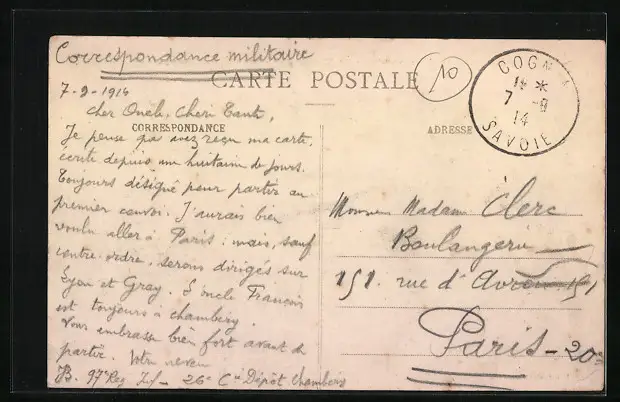 Correspondance militaire
CARTE POSTALE
10
COGN
14 *
7 -9
14
SAVOIE
7-9-1914
Cher Oncle, Cheri Tante,
CORRESPONDANCE
ADRESSE
Je pense que avez reçu ma carte,
écrite depuis un huitaine de jours.
Toujours désigné pour partir au
premier convoi. J'aurais bien
voulu aller à Paris: mais, sauf
contre-ordre, serons dirigés sur
Lyon et Gray. L'oncle François
est toujours à chambery.
Vous embrasse bien fort avant de
partir. Votre neveu
B. 97e Reg Inf - 26e Cie Dépôt Chambery
Monsieur Madame Clerc
Boulangerie
151. rue d' 151
Paris - 20e